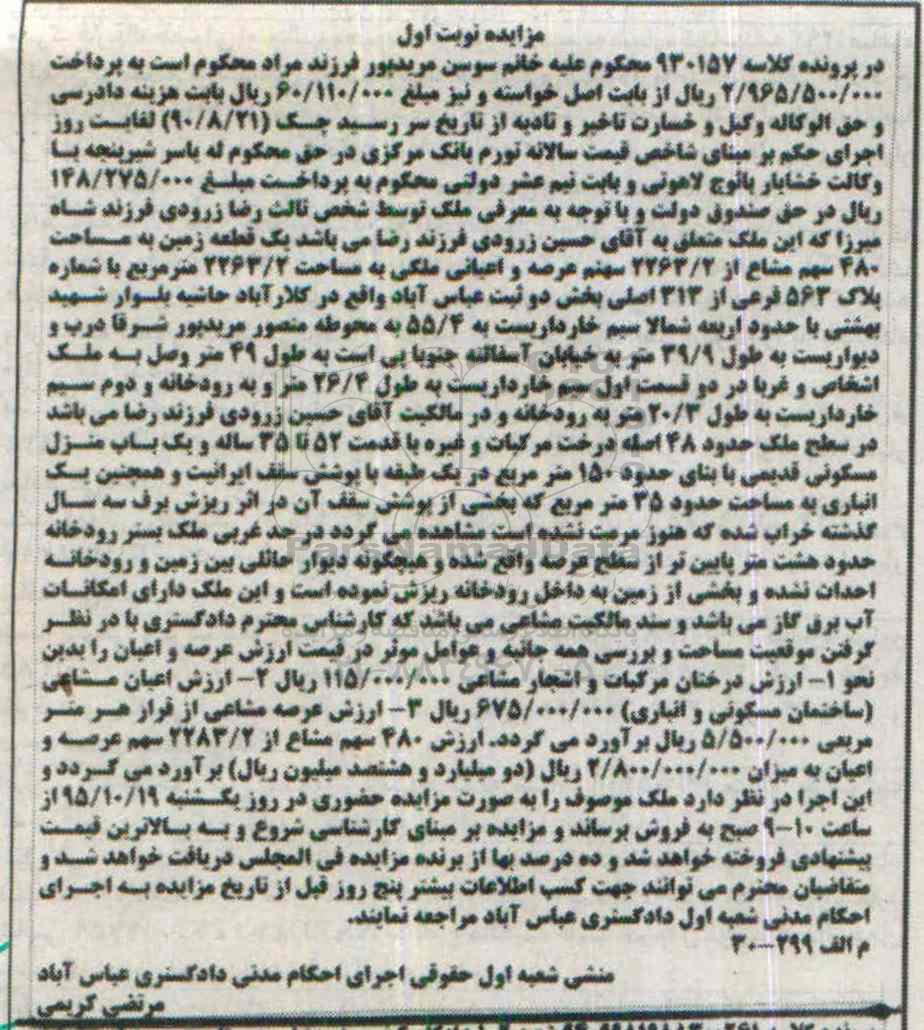 مزایده نوبت اول
در پرونده کلاسه ۹۳۰۱۵۷ محکوم علیه خانم سوسن مریدپور فرزند مراد محکوم است به پرداخت
۲/۹۶۵/۵۰۰/۰۰۰ ریال از بابت اصل خواسته و نیز مبلغ ۶۰/۱۱۰/۰۰۰ ریال بابت هزینه دادرسی
و حق الوکاله وکیل و خسارت تاخیر و تادیه از تاریخ سر رسید چک (۹۰/۸/۲۱) لغایت روز
اجرای حکم بر مبنای شاخص قیمت سالانه تورم بانک مرکزی در حق محکوم له یاسر شیرپنجه با
وکالت خشایار بائوج لاهوتی و بابت نیم عشر دولتی محکوم به پرداخت مبلغ ۱۴۸/۲۷۵/۰۰۰
ریال در حق صندوق دولت و با توجه به معرفی ملک توسط شخص ثالث رضا زرودی فرزند شاه
میرزا که این ملک متعلق به آقای حسین زرودی فرزند رضا می باشد یک قطعه زمین به مساحت
۴۸۰ سهم مشاع از ۲۲۶۳/۲ سهم عرصه و اعیانی ملکی به مساحت ۲۲۶۳/۲ مترمربع با شماره
پلاک ۵۶۳ فرعی از ۳۱۳ اصلی بخش دو ثبت عباس آباد واقع در کلارآباد حاشیه بلوار شهید
بهشتی با حدود اربعه شمالا سیم خارداریست به ۵۵/۴ به محوطه منصور مریدپور شرقا درب و
دیواریست به طول ۳۹/۹ متر به خیابان آسفالته جنوبا پی است به طول ۴۹ متر وصل به ملک
اشخاص و غربا در دو قسمت اول سیم خارداریست به طول ۲۶/۴ متر و به رودخانه و دوم سیم
خارداریست به طول ۲۰/۳ متر به رودخانه و در مالکیت آقای حسین زرودی فرزند رضا می باشد
در سطح ملک حدود ۴۸ اصله درخت مرکبات و غیره با قدمت ۵۲ تا ۳۵ ساله و یک باب منزل
مسکونی قدیمی با بنای حدود ۱۵۰ متر مربع در یک طبقه با پوشش سقف ایرانیت و همچنین یک
انباری به مساحت حدود ۳۵ متر مربع که بخشی از پوشش سقف آن در اثر ریزش برف سه سال
گذشته خراب شده که هنوز مرمت نشده است مشاهده می گردد در حد غربی ملک بستر رودخانه
حدود هشت متر پایین تر از سطح عرصه واقع شده و هیچگونه دیوار حائلی بین زمین و رودخانه
احداث نشده و بخشی از زمین به داخل رودخانه ریزش نموده است و این ملک دارای امکانات
آب برق گاز می باشد و سند مالکت مشاعی می باشد که کارشناس محترم دادگستری با در نظر
گرفتن موقعیت مساحت و بررسی همه جانبه و عوامل موثر در قیمت ارزش عرصه و اعیان را بدین
نحو ۱- ارزش درختان مرکبات و اشجار مشاعی ۱۱۵/۰۰۰/۰۰۰ ریال ۲- ارزش اعیان مشاعی
(ساختمان مسکونی و انباری) ۶۷۵/۰۰۰/۰۰۰ ریال ۳- ارزش عرصه مشاعی از قرار هر متر
مربعی ۵/۵۰۰/۰۰۰ ریال برآورد می گردد. ارزش ۴۸۰ سهم مشاع از ۲۲۸۳/۲ سهم عرصه و
اعیان به میزان ۲/۸۰۰/۰۰۰/۰۰۰ ریال (دو میلیارد و هشتصد میلیون ریال) برآورد می گردد و
این اجرا در نظر دارد ملک موصوف را به صورت مزایده حضوری در روز یکشنبه ۹۵/۱۰/۱۹ از
ساعت ۱۰-۹ صبح به فروش برساند و مزایده بر مبنای کارشناسی شروع و به بالاترین قیمت
پیشتهادی فروخته خواهد شد و ده درصد بها از برنده مزایده فی المجلس دریافت خواهد شد و
متقاضیان محترم می توانند جهت کسب اطلاعات بیشتر پنج روز قبل از تاریخ مزایده به اجرای
احکام مدنی شعبه اول دادگستری عباس آباد مراجعه نمایند.
م الف ۲۹۹-۳۰
منشی شعبه اول حقوقی اجرای احکام مدنی دادگستری عباس آباد
مرتضی کریمی
ParsNamadData